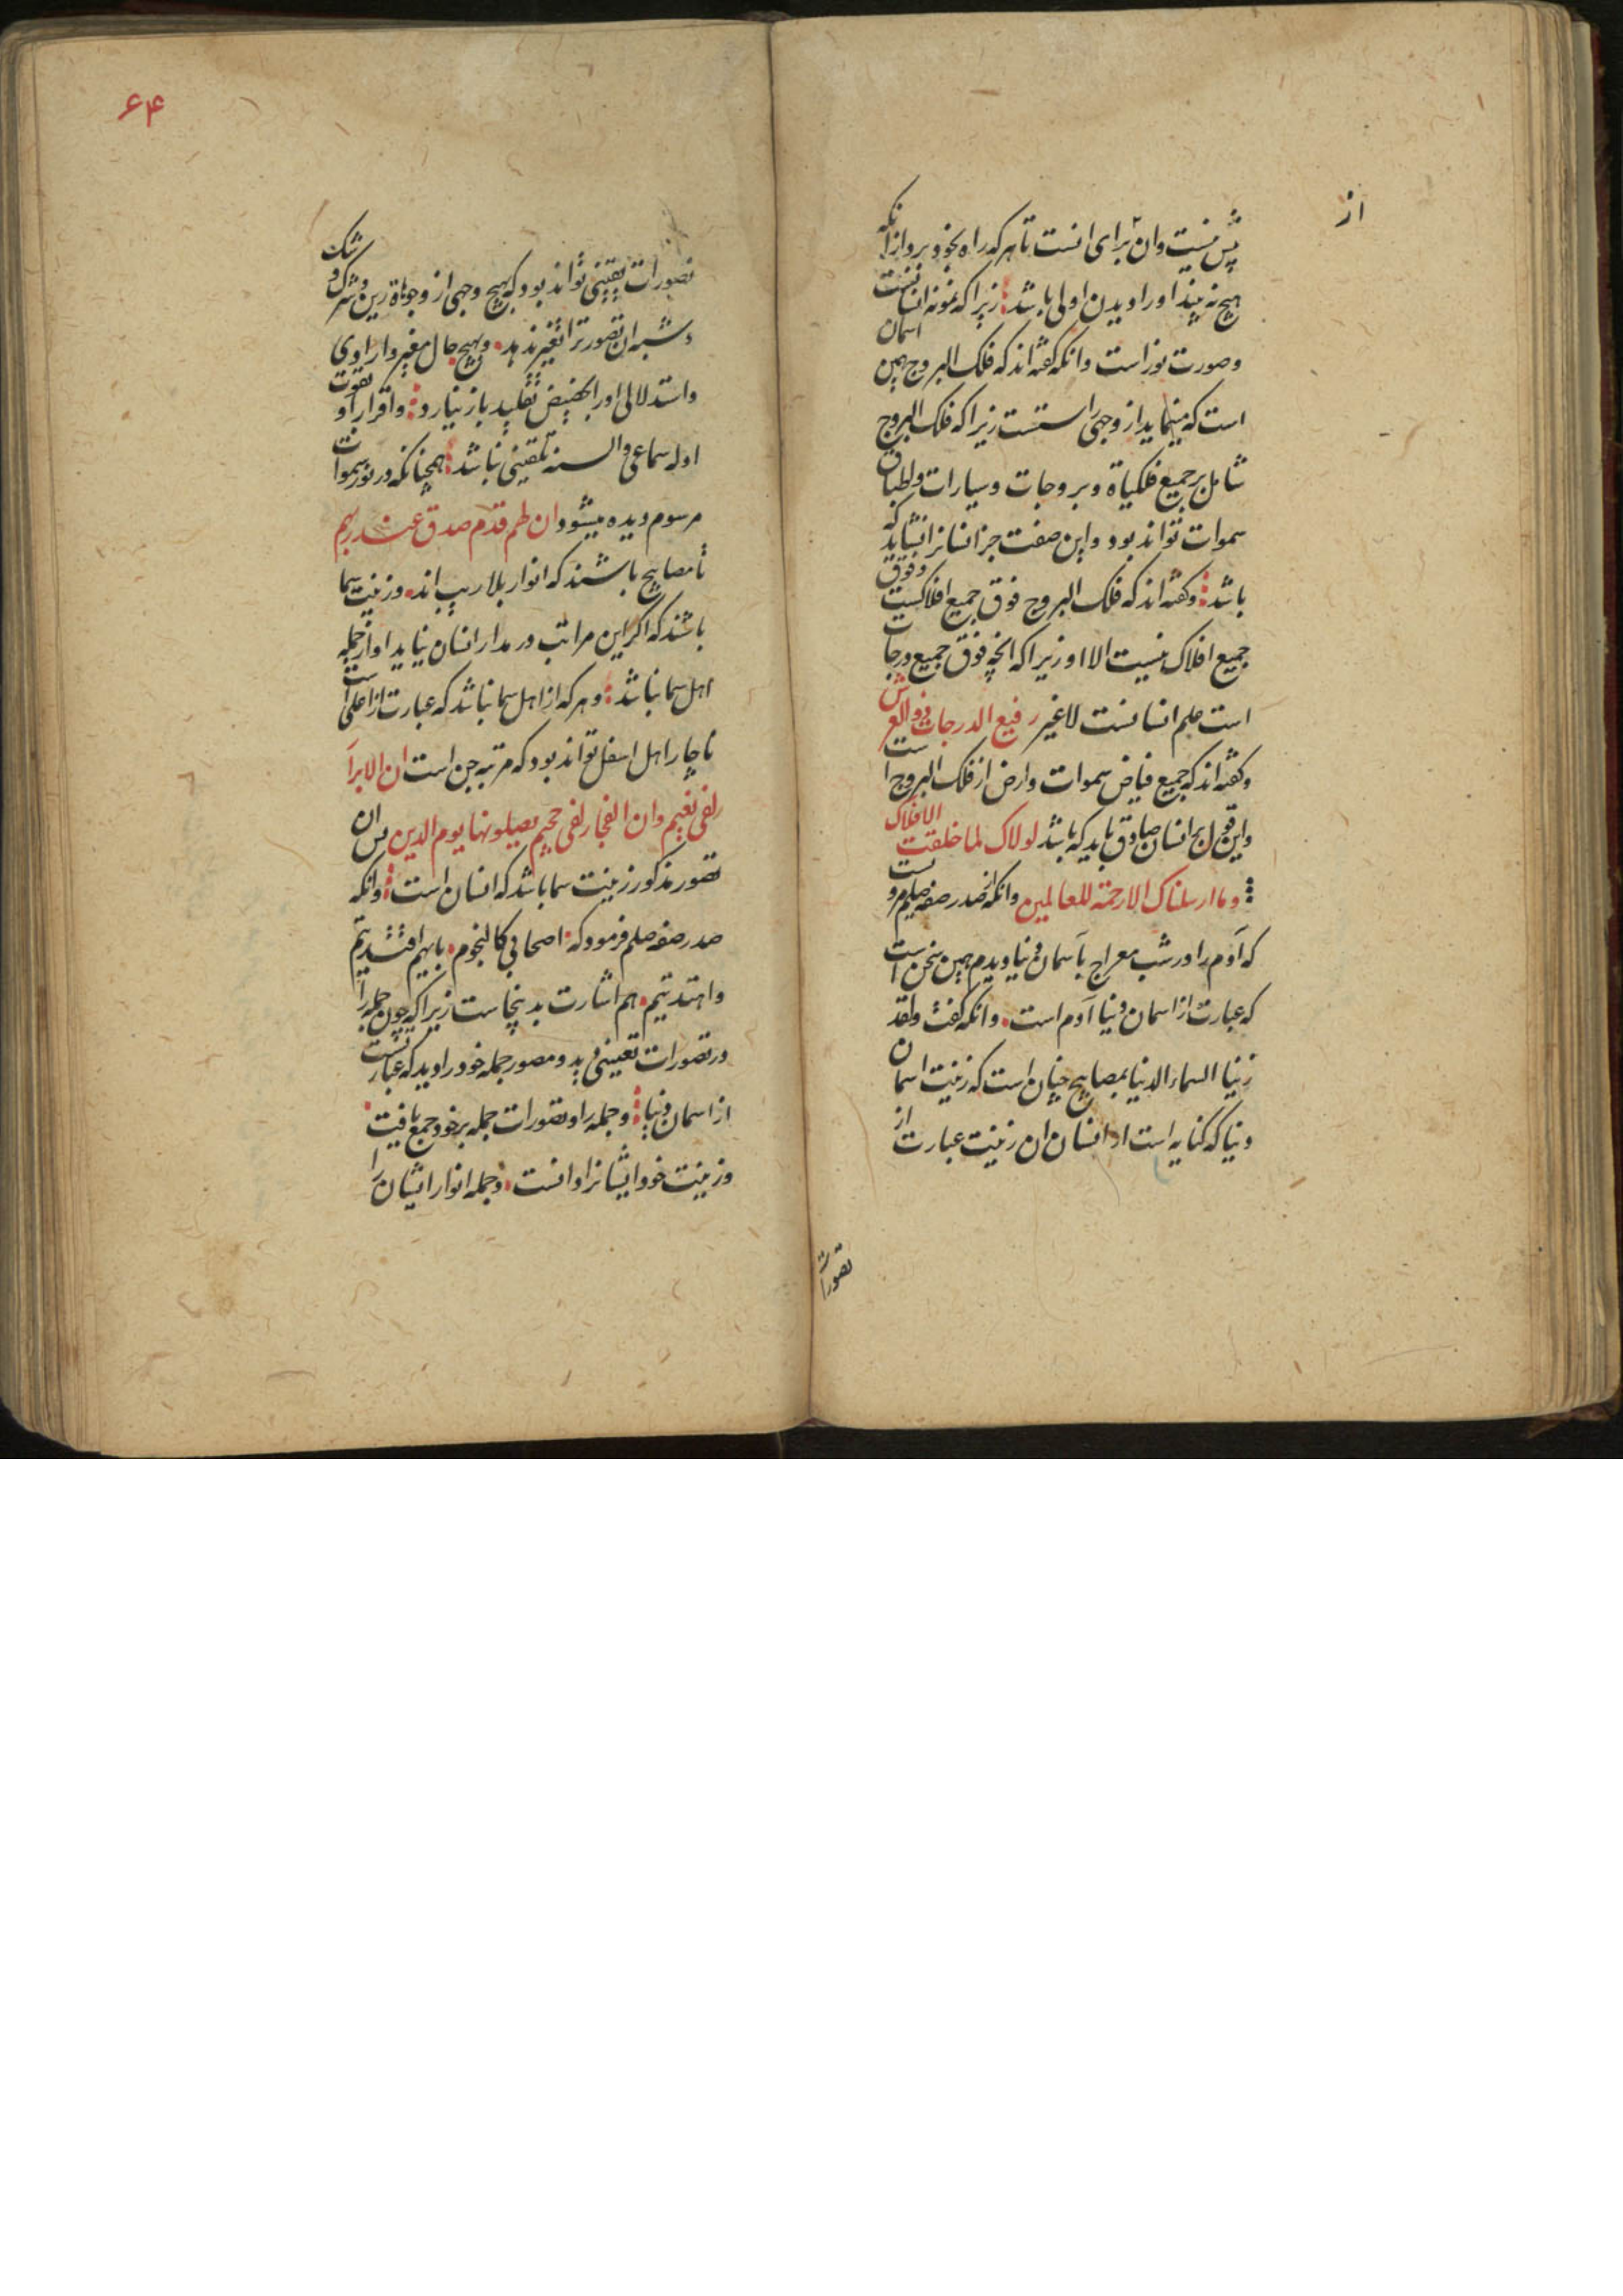 از
پس نیست وان برای انست تا هرکه راه بخود برد از انکه
هیچ نه بیند اورا دیدن اولی باشد زیرا که نمونه انسانست
وصورت نور است وانکه کفته اند که فلک البروج همین اسمان
است که مینماید از وجهی راستست زیرا که فلک البروج
شامل بر جمیع فلکیاة وبروجات وسیارات وطباق
سموات تواند بود واین صفت جز انسانرا نشاید که
باشد وکفته اند که فلک البروج فوق جمیع افلاکست وفوق
جمیع افلاک نیست الا او زیرا که انچه فوق جمیع درجات
است علم انسانست لاغیر رفیع الدرجات ذو العرش
وکفته اند که جمیع فیاض سموات وارض از فلک البروج است
واین قول بر انسان صادق باید که باشد لولاک لما خلقت الافلاک
وما ارسلناک الا رحمة للعالمین وانکه از صدر صفه صلعم مرویست
که آدم را در شب معراج بآسمان دنیا دیدم همین سخن است
که عبارت از اسمان دنیا آدم است وانکه کفت ولقد
زینا السماء الدنیا بمصابیح چنان است که زینت اسمان
دنیا که کنایه است از انسان ان زینت عبارت از
تصورات
۶۴
تصورات یقینی تواند بود که بهیچ وجهی از وجوهاة رین وشرک وشک
وشبه ان تصور ترا تغیر ندهد وهیچ حال مغیر وار اوی
واستدلالی اورا بحضیض تقلید باز نیارد واقرار او بقوت
ادله سماعی والسنه تلقینی نباشد همچنانکه در نور سموات
مرسوم دیده میشود ان لهم قدم صدق عند ربهم
تا مصابیح باشند که انوار بلا ریب اند وزینت سما
باشند که اکر این مراتب در مدار انسان نیاید او از جمله
اهل سما نباشد وهرکه از اهل سما نباشد که عبارت از اعلی است
ناچار اهل اسفل تواند بود که مرتبه جن است ان الابرار
لفی نعیم وان الفجار لفی جحیم یصلونها یوم الدین پس ان
تصور مذکور زینت سما باشد که انسان است وانکه
صدر صفه صلعم فرمود که اصحابی کالنجوم بایهم اقتدیتم
واهتدیتم هم اشارت بدینجاست زیرا که چون جمله را
در تصورات تعیینی دید ومصور جمله خود را دید که عبارتست
از اسمان دنیا وجمله را وتصورات جمله بر خود جمع یافت
وزینت خود ایشانرا دانست وجمله انوار ایشان را